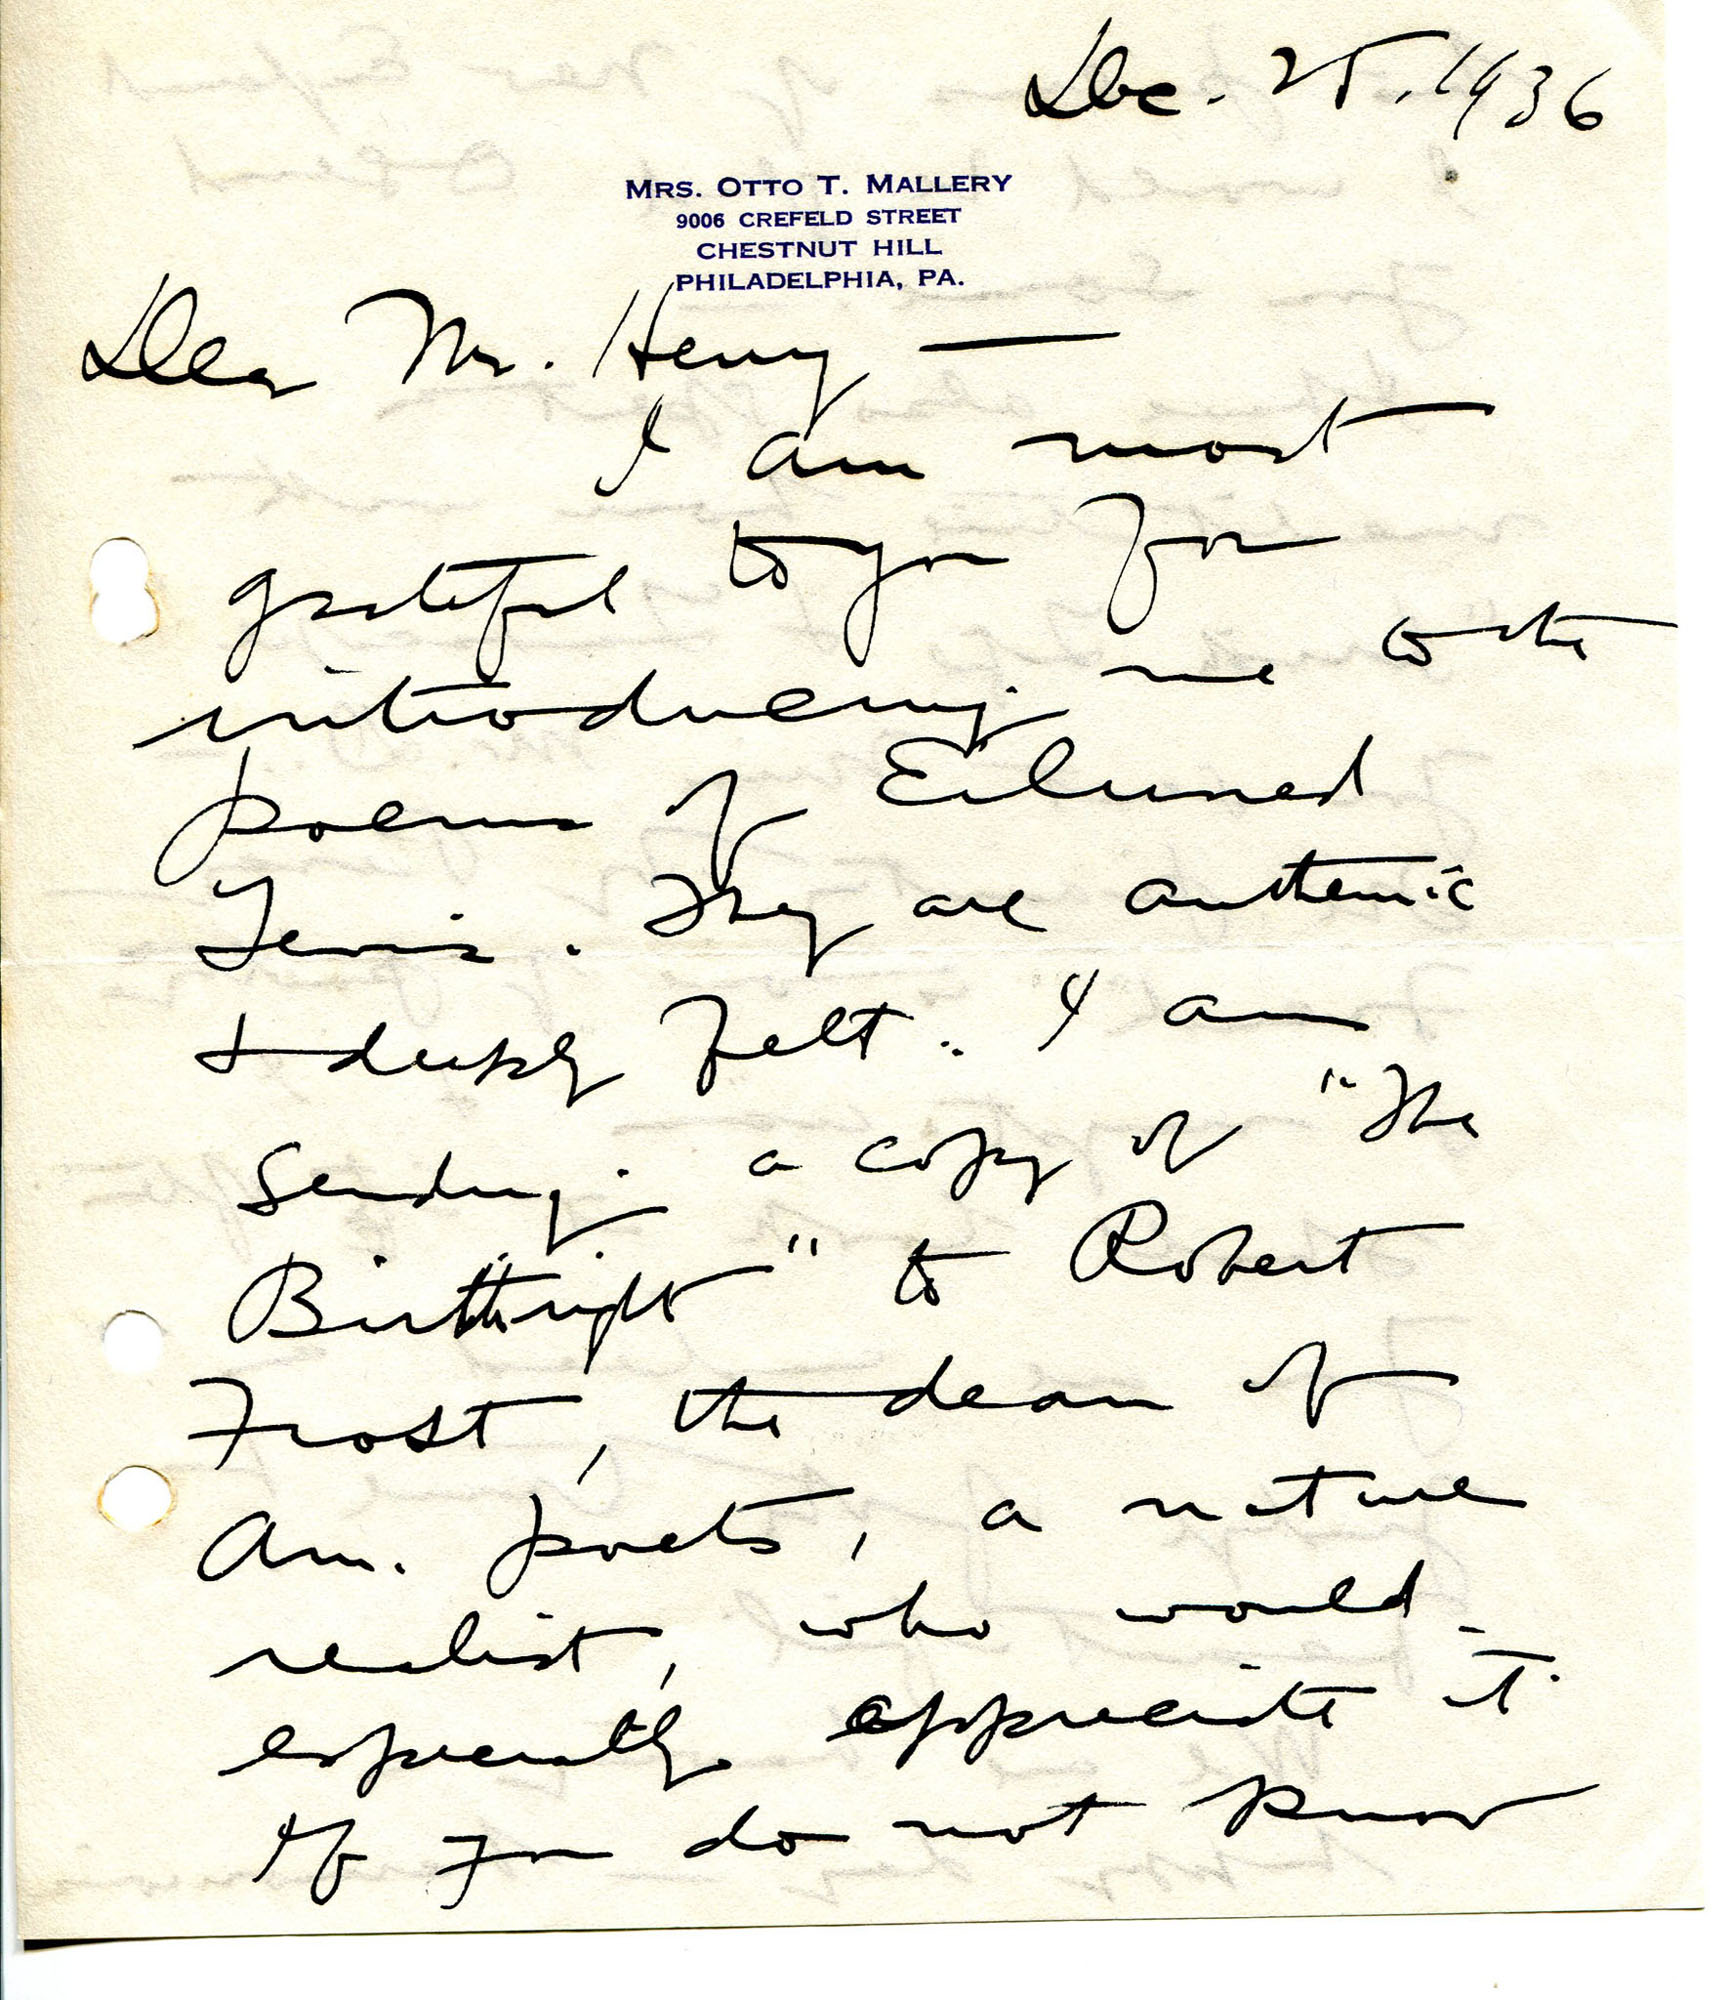 Dec. 25, 1936
MRS. OTTO T. MALLERY
9006 CREFELD STREET
CHESTNUT HILL
PHILADELPHIA, PA.
Dear Mr. Henry —
I am most
grateful to you for
introducing me to the
poems of Eiluned
Lewis. They are authentic
+ deeply felt. I am
sending a copy of "The
Birthright" to Robert
Frost, the dean of
Am. poets, a nature
realist, who would
especially appreciate it.
If you do not know